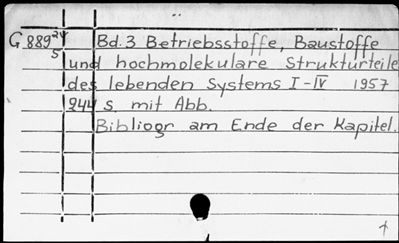 G 889 24/5 Bd. 3 Betriebsstoffe, Baustoffe
und hochmolekulare Strukturteile
des lebenden Systems I-IV 1957
244 s. mit Abb.
Bibliogr am Ende der Kapitel.